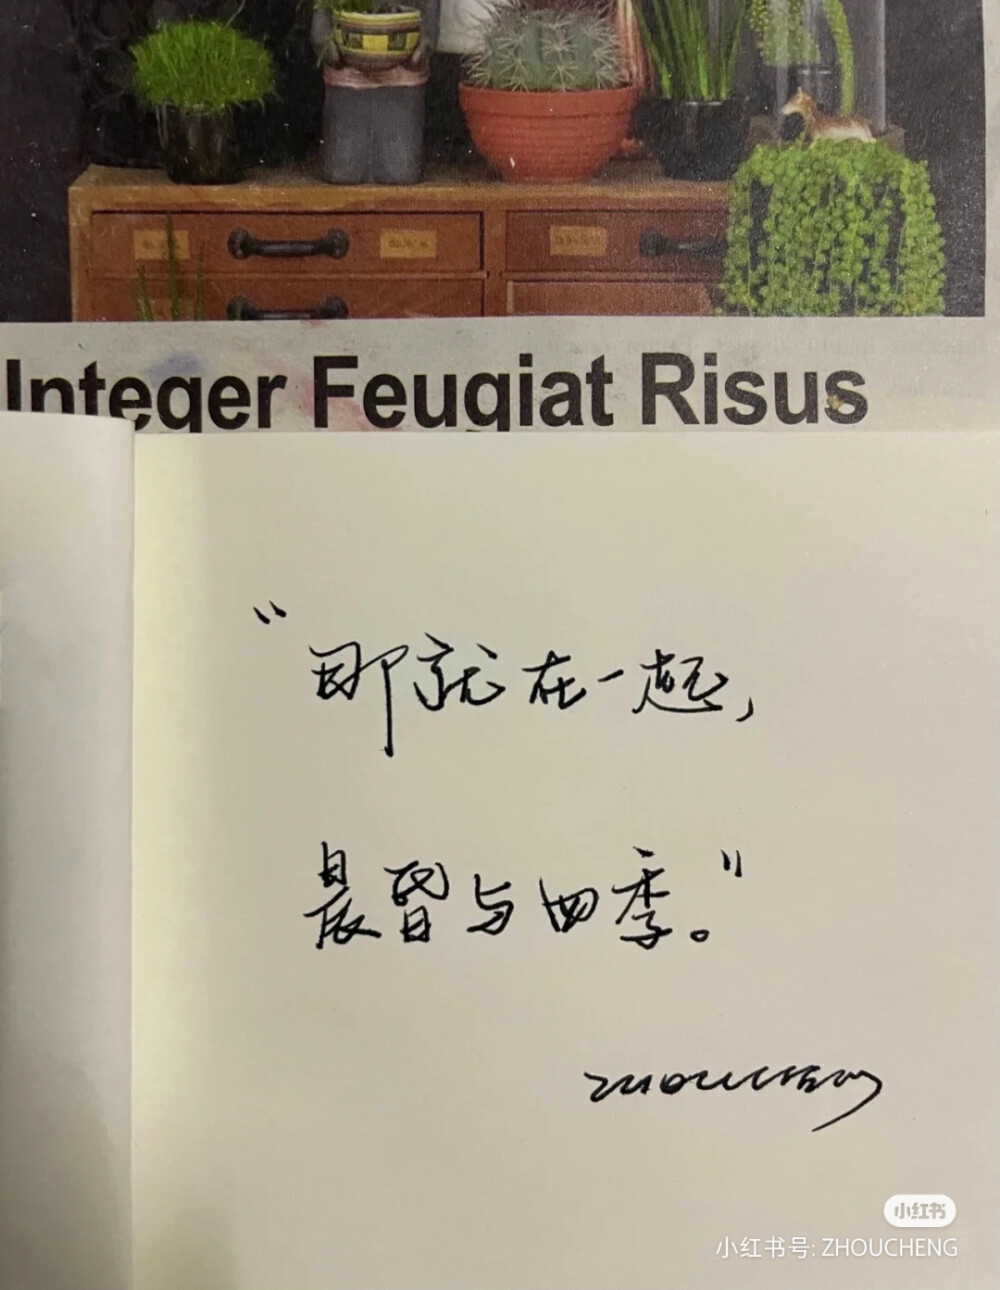 Integer Feugiat Risus
“那就在一起，
晨昏与四季。”
ZHOUCHENG
小红书
小红书号: ZHOUCHENG